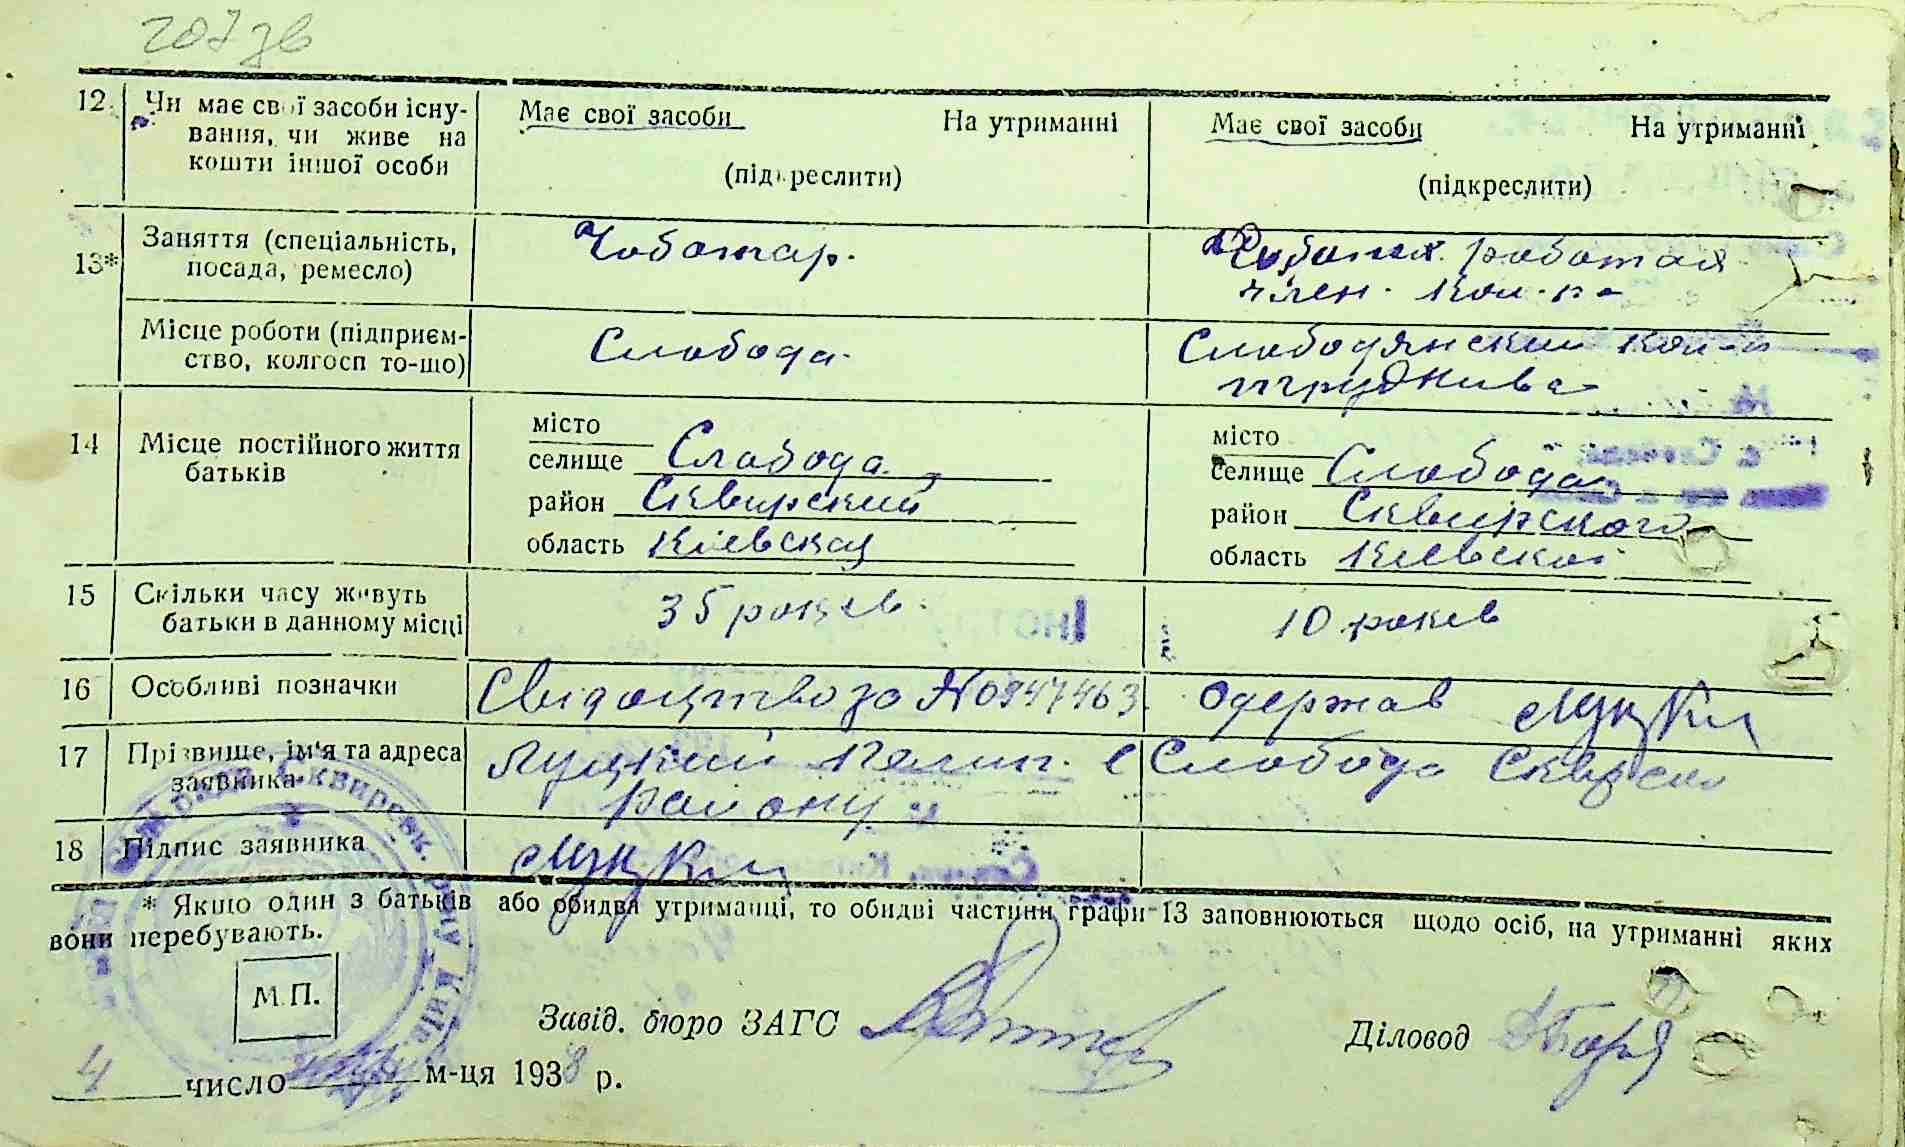 207 зв
12. Чи має свої засоби існу-
вання, чи живе на
кошти іншої особи
Має свої засоби На утриманні
(підкреслити)
Має свої засоби На утриманні
(підкреслити)
13* Заняття (спеціальність,
посада, ремесло)
Чоботар.
работая
член. кол-па
Місце роботи (підприєм-
ство, колгосп то-що)
Слобода.
Слободянский
14 Місце постійного життя
батьків
місто
селище Слабода
район Сквирский
область Кіевская
місто
селище Слобода
район Сквирского
область Киевской
15 Скільки часу живуть
батьки в данному місці
35 роков.
10 роков
16 Особливі позначки
Свидоцтво за № 0947463 одержав Луцкий
17 Прізвище, ім'я та адреса
заявника
Луцкий с Слобода Сквирско
району
18 Підпис заявника
Луцкий
* Якщо один з батьків або обидва утриманці, то обидві частини графи 13 заповнюються щодо осіб, на утриманні яких
вони перебувають.
М.П.
Завід. бюро ЗАГС
Діловод
4 число м-ця 1938 р.